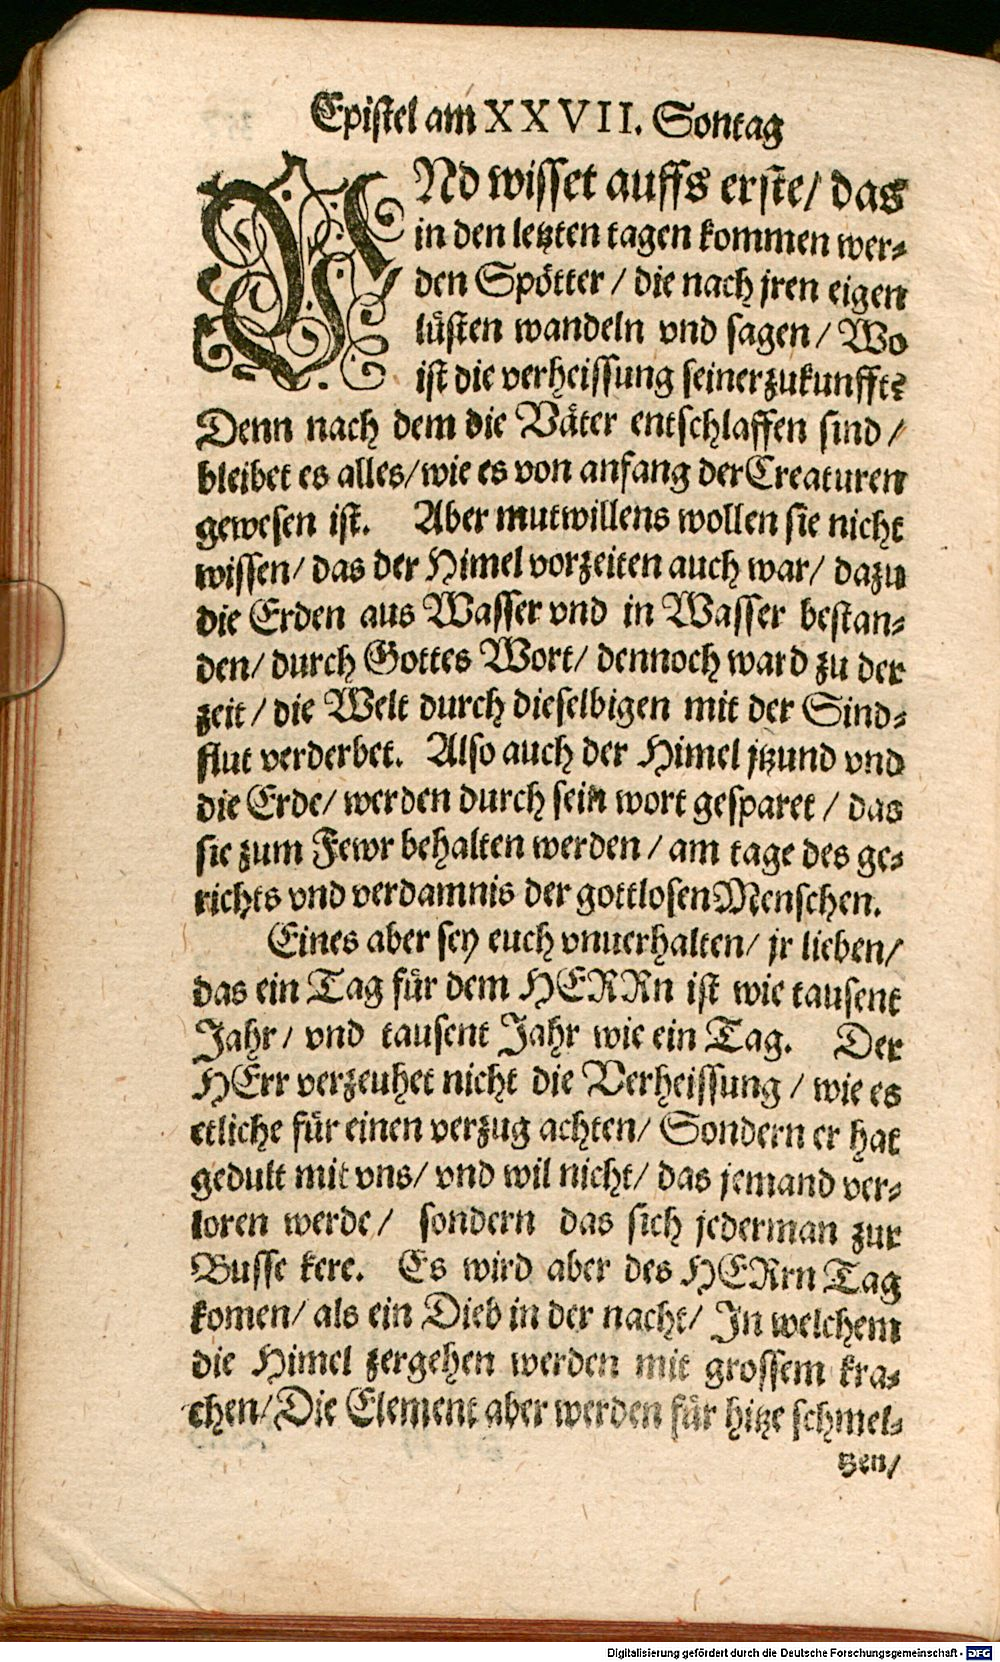 Epistel am XXVII. Sontag
VNd wisset auffs erste/ das
in den letzten tagen kommen wer-
den Spötter / die nach jren eigen
lüsten wandeln vnd sagen / Wo
ist die verheissung seiner zukunfft?
Denn nach dem die Väter entschlaffen sind /
bleibet es alles/ wie es von anfang der Creaturen
gewesen ist. Aber mutwillens wollen sie nicht
wissen/ das der Himel vorzeiten auch war/ dazu
die Erden aus Wasser vnd in Wasser bestan-
den/ durch Gottes Wort/ dennoch ward zu der
zeit / die Welt durch dieselbigen mit der Sind-
flut verderbet. Also auch der Himel jtzund vnd
die Erde/ werden durch sein wort gesparet / das
sie zum Fewr behalten werden / am tage des ge-
richts vnd verdamnis der gottlosen Menschen.
Eines aber sey euch vnuerhalten/ jr lieben/
das ein Tag für dem HERRn ist wie tausent
Jahr / vnd tausent Jahr wie ein Tag. Der
HErr verzeuhet nicht die Verheissung / wie es
etliche für einen verzug achten/ Sondern er hat
gedult mit vns/ vnd wil nicht/ das jemand ver-
loren werde / sondern das sich jederman zur
Busse kere. Es wird aber des HERrn Tag
komen/ als ein Dieb in der nacht/ In welchem
die Himel zergehen werden mit grossem kra-
chen/ Die Element aber werden für hitze schmel-
tzen/
Digitalisierung gefördert durch die Deutsche Forschungsgemeinschaft - DFG